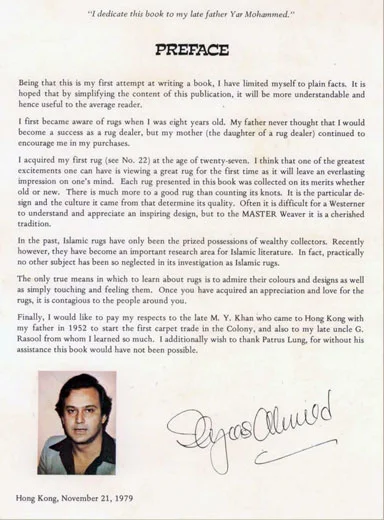 "I dedicate this book to my late father Yar Mohammed."
PREFACE
Being that this is my first attempt at writing a book, I have limited myself to plain facts. It is
hoped that by simplifying the content of this publication, it will be more understandable and
hence useful to the average reader.
I first became aware of rugs when I was eight years old. My father never thought that I would
become a success as a rug dealer, but my mother (the daughter of a rug dealer) continued to
encourage me in my purchases.
I acquired my first rug (see No. 22) at the age of twenty-seven. I think that one of the greatest
excitements one can have is viewing a great rug for the first time as it will leave an everlasting
impression on one's mind. Each rug presented in this book was collected on its merits whether
old or new. There is much more to a good rug than counting its knots. It is the particular de-
sign and the culture it came from that determine its quality. Often it is difficult for a Westerner
to understand and appreciate an inspiring design, but to the MASTER Weaver it is a cherished
tradition.
In the past, Islamic rugs have only been the prized possessions of wealthy collectors. Recently
however, they have become an important research area for Islamic literature. In fact, practically
no other subject has been so neglected in its investigation as Islamic rugs.
The only true means in which to learn about rugs is to admire their colours and designs as well
as simply touching and feeling them. Once you have acquired an appreciation and love for the
rugs, it is contagious to the people around you.
Finally, I would like to pay my respects to the late M. Y. Khan who came to Hong Kong with
my father in 1952 to start the first carpet trade in the Colony, and also to my late uncle G.
Rasool from whom I learned so much. I additionally wish to thank Patrus Lung, for without his
assistance this book would have not been possible.
Ahmed
Hong Kong, November 21, 1979